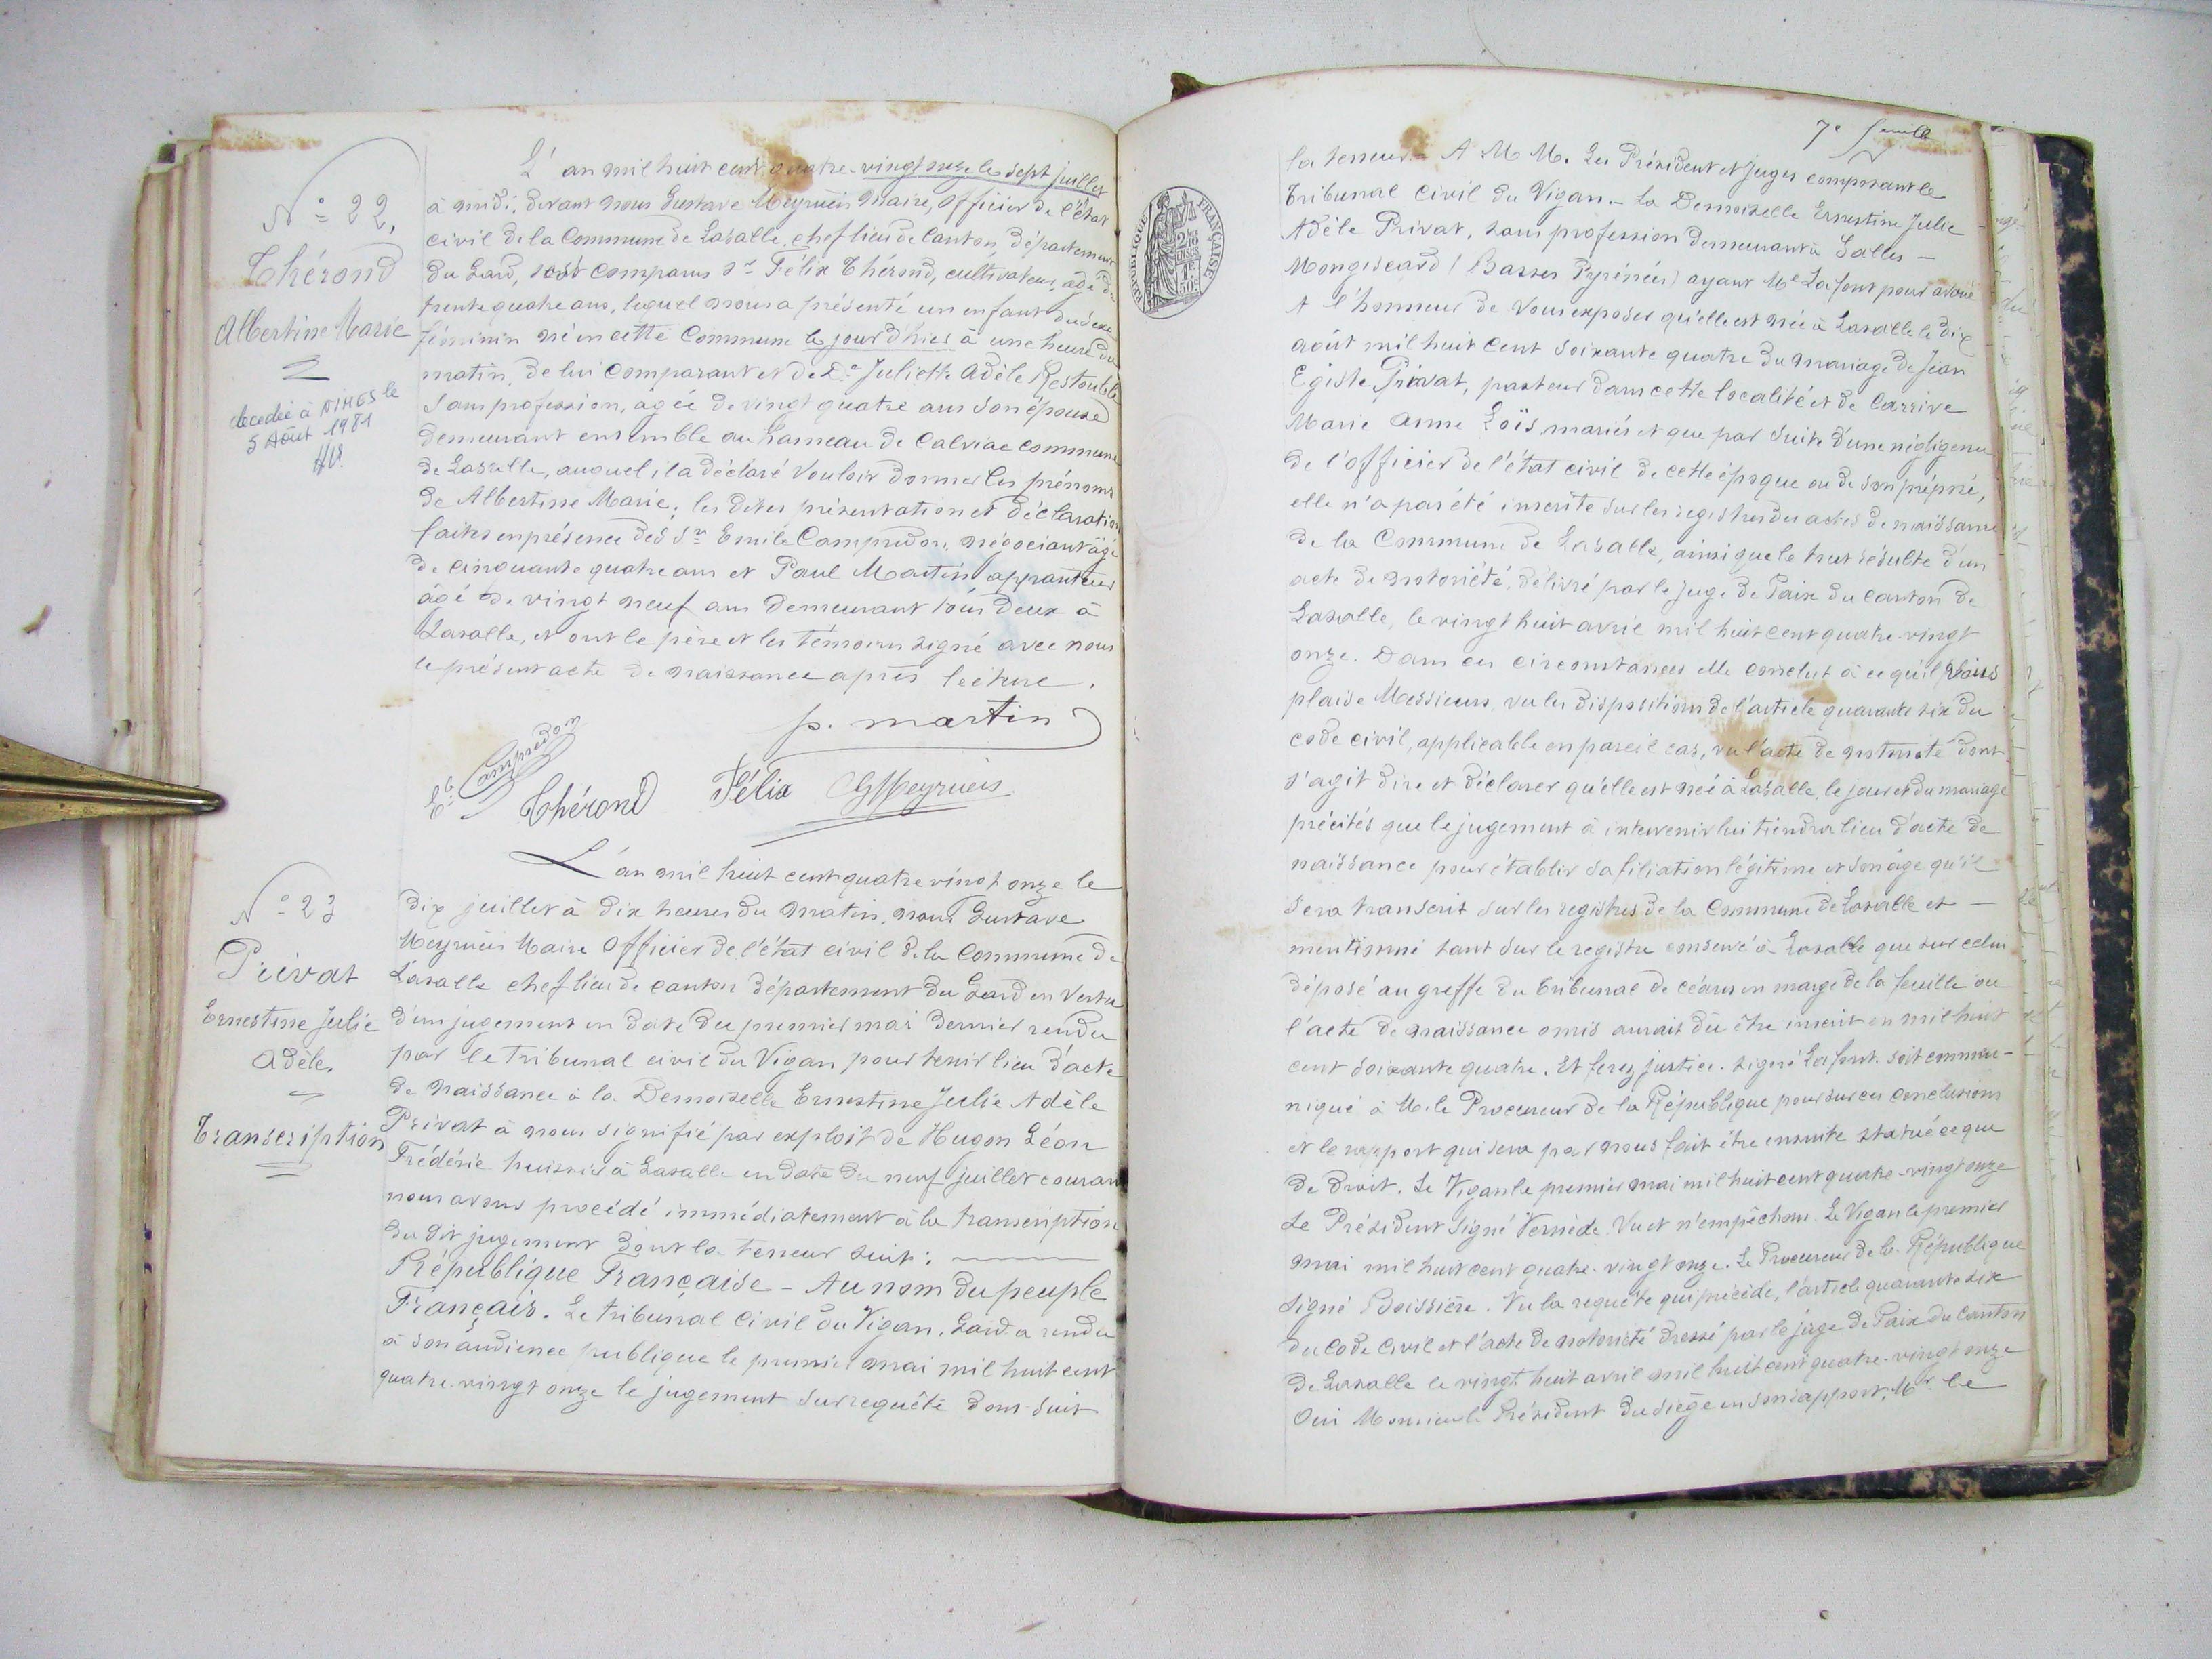 N° 22.
Thérond
Albertine Marie
décédée à NIMES le
5 Août 1981
L'an mil huit cent quatre-vingt onze le sept juillet
à midi, devant nous Gustave Meyrueis maire, officier de l'état
civil de la Commune de Lasalle, chef lieu de canton, département
du Gard, est comparu Sr Félix Thérond, cultivateur, agé de
trente quatre ans, lequel nous a présenté un enfant du sexe
féminin né en cette commune le jour d'hier à une heure du
matin, de lui comparant et de De Juliette Adèle Restouble
sans profession, agée de vingt quatre ans son épouse
demeurant ensemble au hameau de Calviac commune
de Lasalle, auquel il a déclaré vouloir donner les prénoms
de Albertine Marie; les dites présentation et déclaration
faites en présence des Srs Emile Campredon, négociant agé
de cinquante quatre ans et Paul Martin appariteur
âgé de vingt neuf ans demeurant tous deux à
Lasalle, et ont le père et les témoins signé avec nous
le présent acte de naissance après lecture.
p. martin
Campredon
Thérond Félix GMeyrueis
N° 23
Privat
Ernestine Julie
Adèle.
Transcription
L'an mil huit cent quatre vingt onze le
dix juillet à dix heures du matin, nous Gustave
Meyrueis Maire officier de l'état civil de la Commune de
Lasalle chef lieu de canton département du Gard en vertu
d'un jugement en date du premier mai dernier rendu
par le tribunal civil du Vigan pour tenir lieu d'acte
de naissance à la Demoiselle Ernestine Julie Adèle
Privat à nous signifié par exploit de Hugon Léon
Frédéric huissier à Lasalle en date du neuf juillet courant
nous avons procédé immédiatement à la transcription
du dit jugement dont la teneur suit:
République Française - Au nom du peuple
Français. Le tribunal civil du Vigan, Gard a rendu
à son audience publique le premier mai mil huit cent
quatre-vingt onze le jugement sur requête dont suit
7e feuille
RÉPUBLIQUE FRANÇAISE
la teneur - A M M. Les Président et Juges composant le
Tribunal Civil du Vigan - La Demoiselle Ernestine Julie
Adèle Privat, sans profession demeurant à Salles -
Mongiscard (Basses Pyrénées) ayant Me Lafont pour avoué
A l'honneur de vous exposer qu'elle est née à Lasalle le dix
août mil huit cent soixante quatre du mariage de Jean
Egiste Privat, pasteur dans cette localité et de Carrive
Marie Anne Loïs mariés et que par suite d'une négligence
de l'officier de l'état civil de cette époque ou de son préposé,
elle n'a pas été inscrite sur les registres des actes de naissance
de la Commune de Lasalle, ainsi que le tout résulte d'un
acte de notoriété, délivré par le juge de Paix du canton de
Lasalle, le vingt huit avril mil huit cent quatre-vingt
onze. Dans ces circonstances elle conclut à ce qu'il vous
plaise Messieurs, vu les dispositions de l'article quarante six du
code civil, applicable en pareil cas, vu l'acte de notoriété dont
s'agit dire et déclarer qu'elle est née à Lasalle, le jour et du mariage
précités que le jugement à intervenir lui tiendra lieu d'acte de
naissance pour établir sa filiation légitime et son âge qu'il
sera transcrit sur les registres de la Commune de Lasalle et -
mentionné tant sur le registre conservé à Lasalle que sur celui
déposé au greffe du Tribunal de céans en marge de la feuille ou
l'acte de naissance omis aurait dû être inscrit en mil huit
cent soixante quatre. Et ferez justice. signé Lafont. soit commu-
niqué à M. le Procureur de la République pour sur ces conclusions
et le rapport qui sera par nous fait être ensuite statué ce que
de droit. Le Vigan le premier mai mil huit cent quatre-vingt onze
Le Président Signé Vernède. Vu et n'empêchons. Le Vigan le premier
mai mil huit cent quatre-vingt onze. Le Procureur de la République
signé Boissière. Vu la requête qui précède, l'article quarante six
du Code Civil et l'acte de notoriété dressé par le juge de Paix du Canton
de Lasalle le vingt huit avril mil huit cent quatre-vingt onze
Oui Monsieur le Président du siège en son rapport, Mr le